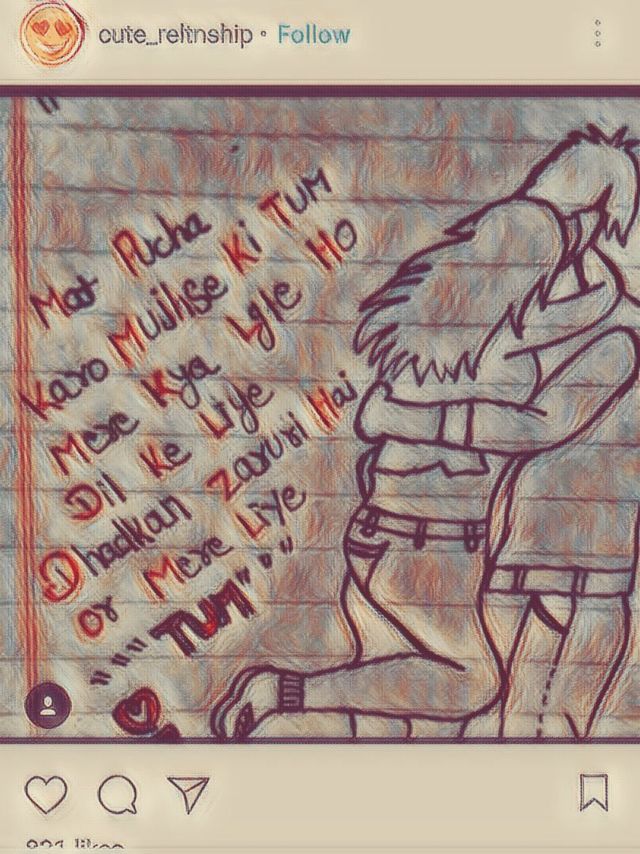 cute_reltnship • Follow
Mat Pucha
Karo Mujhse Ki TUM
Mere Kya Lgte HO
Dil Ke Liye
Dhadkan Zaruri Hai
or Mere Liye
"""TUM"""
likes